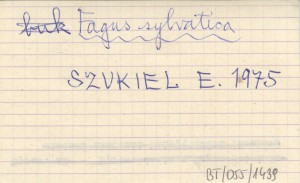 buk Fagus sylvatica
SZUKIEL E. 1975
BT/055/1439